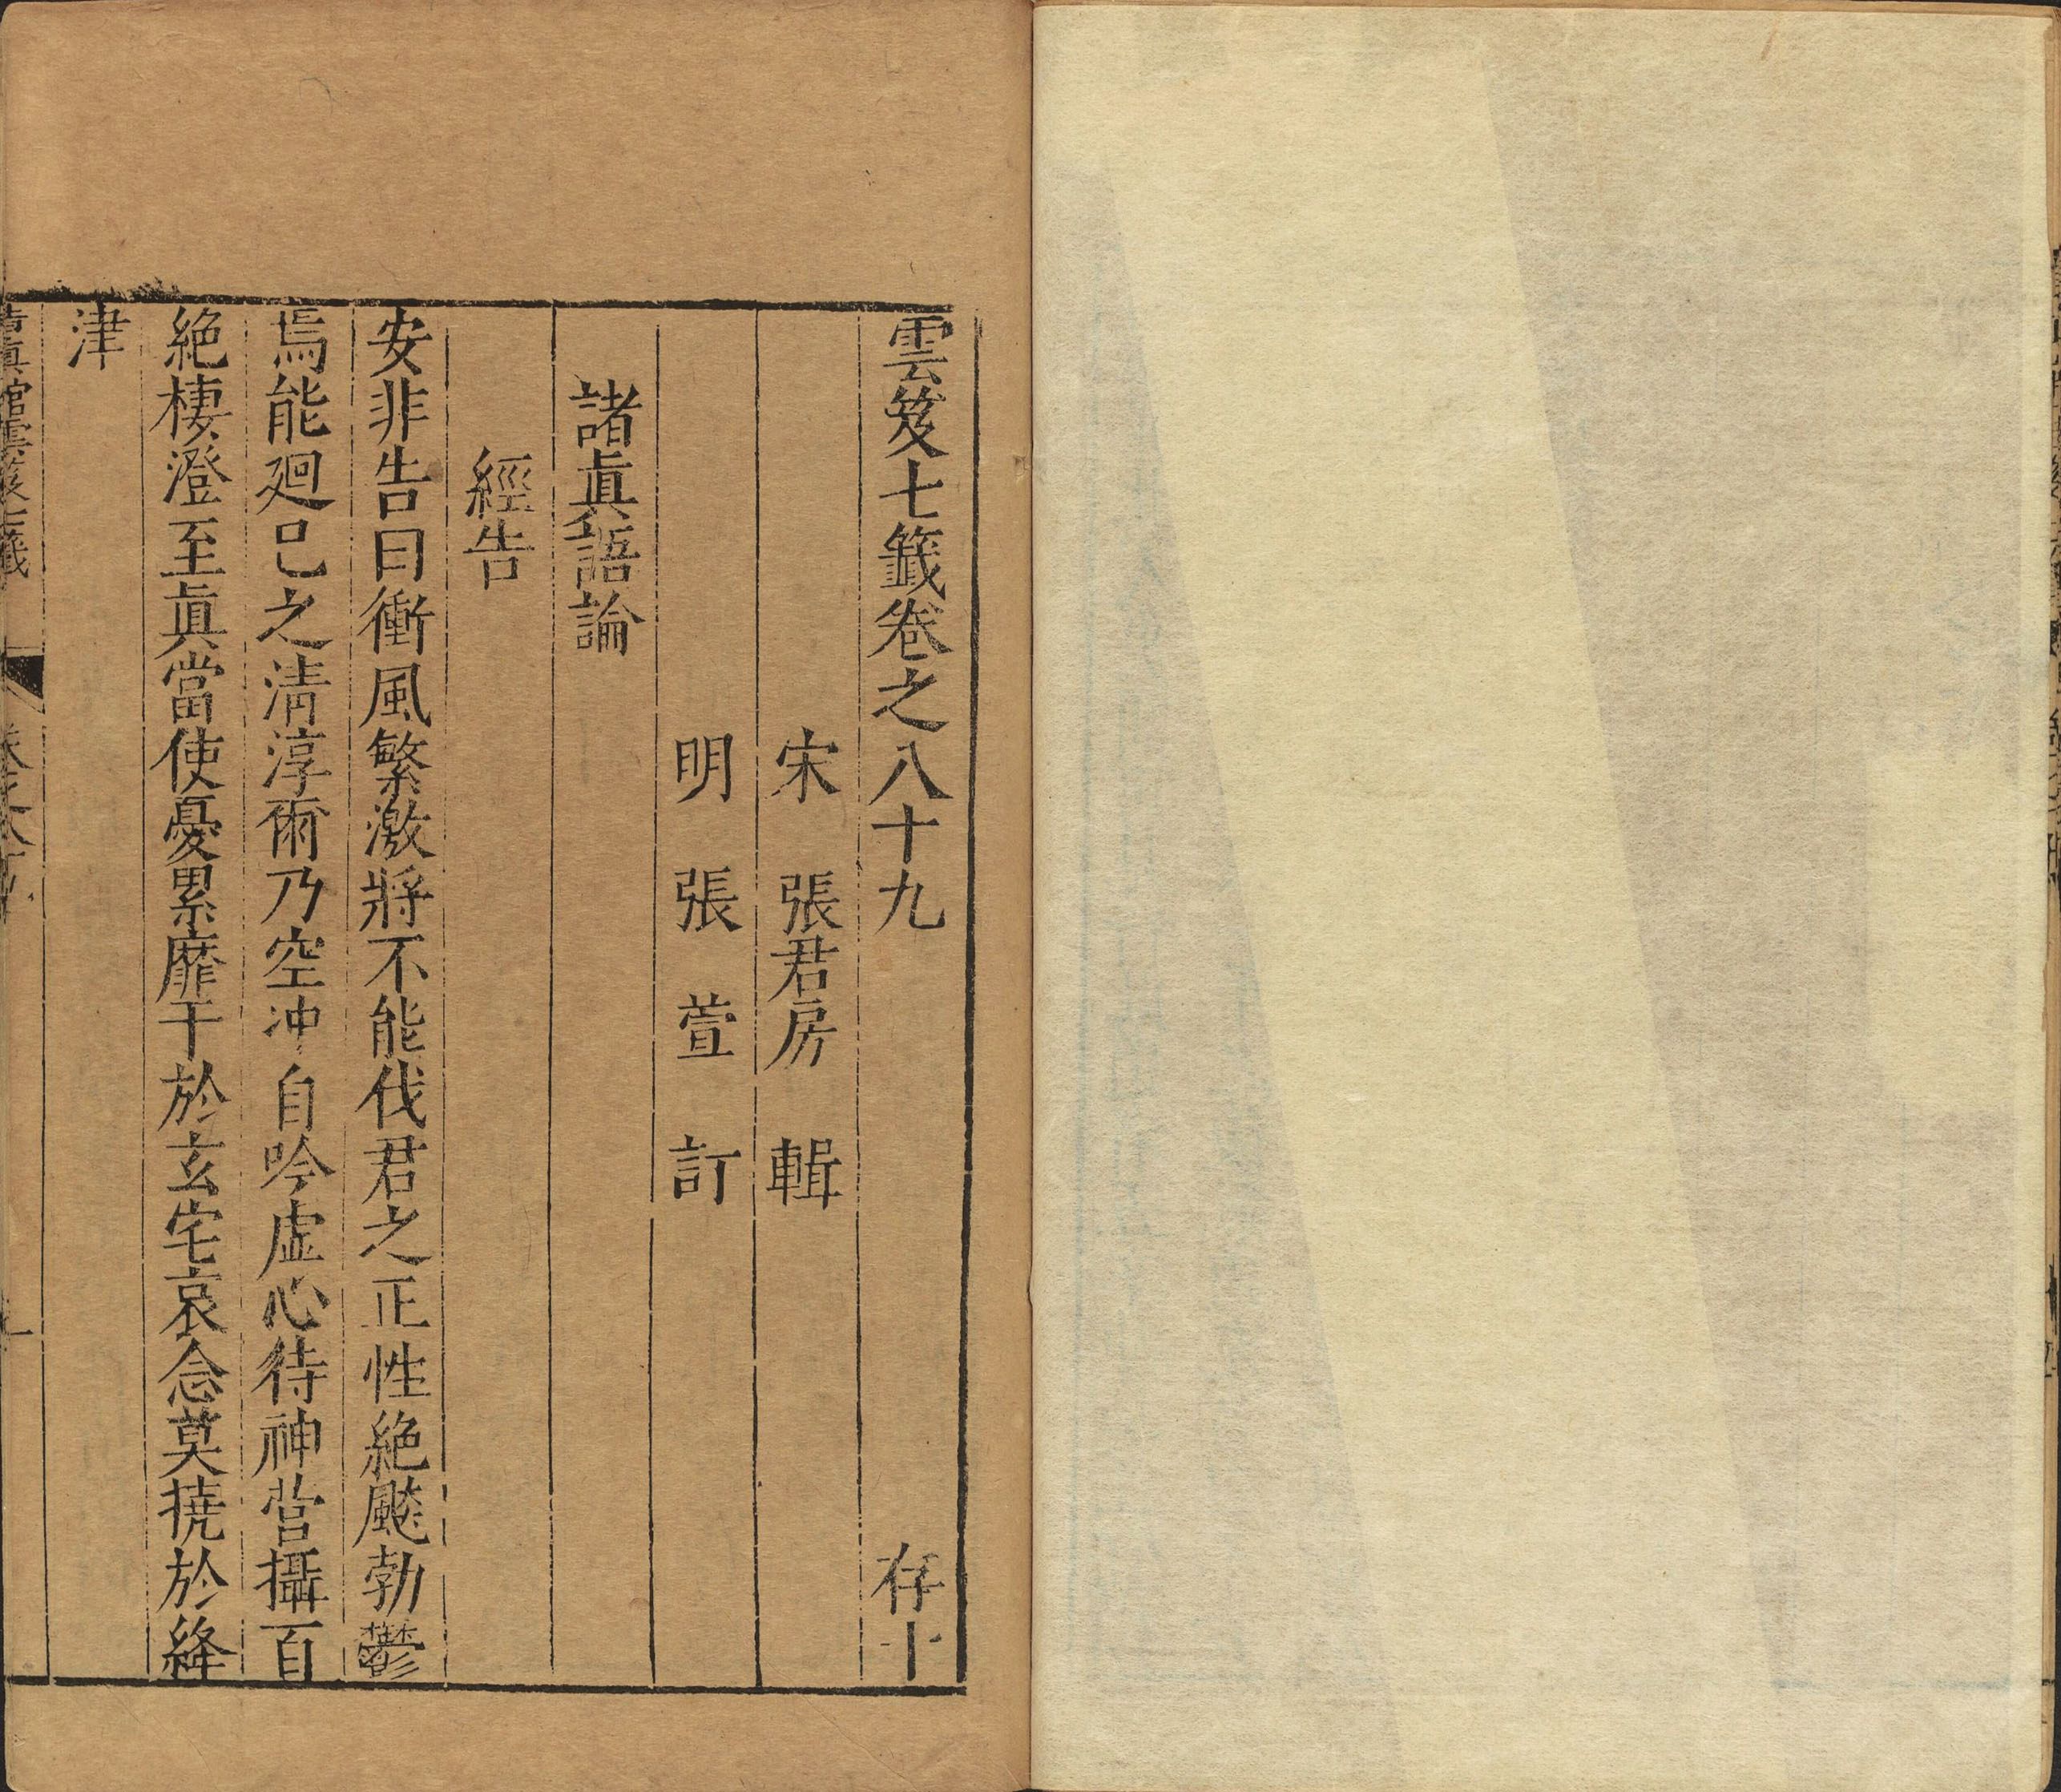 雲笈七籤卷之八十九 存十
宋 張君房 輯
明 張萱 訂
諸眞語論
經告
安非告曰衝風繁激將不能伐君之正性絕飈勃鬱
焉能廻已之淸淳爾乃空沖自吟虛心待神營攝百
絕棲澄至眞當使憂累靡干於玄宅哀念莫撓於絳
津
淸眞館雲笈七籤